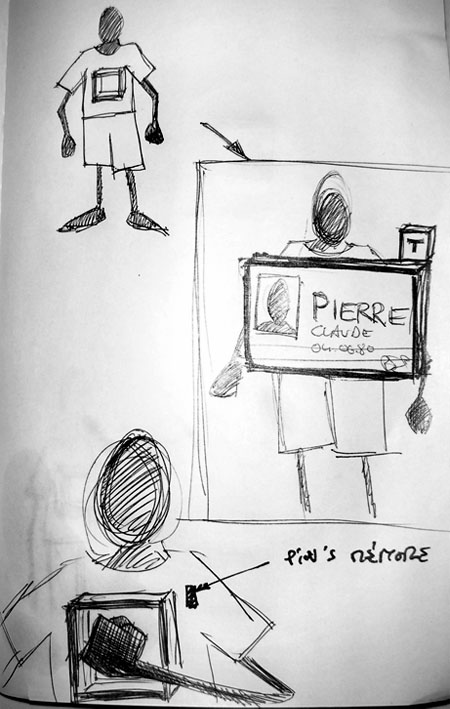 T
PIERRE
CLAUDE
04.06.80
PIN'S MÉMOIRE